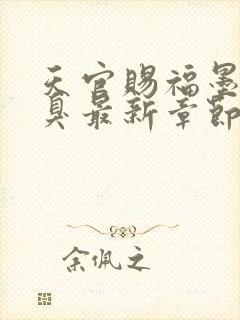 天官赐福墨
臭最新章节
余佩之